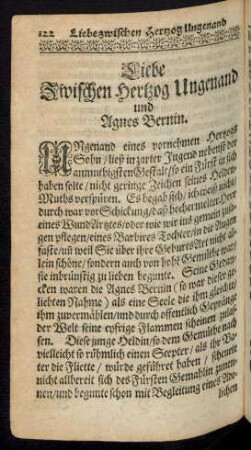 122 Liebe zwischen Hertzog Ungenand
Liebe
Zwischen Hertzog Ungenand
und
Agnes Bernin.
UNgenand eines vornehmen Hertzogs
Sohn / ließ in zarter Jugend nebenst der
anmuthigsten Gestalt / so ein Fürst in sich
haben solte / nicht geringe Zeichen seines Helden-
Muths verspüren. Es begab sich / ich weiß nicht /
durch war vor Schickung / daß hochermelter Herr
eines Wund Artztes / oder wie wir ins gemein zusa-
gen pflegen / eines Barbires Tochter / in die Augen
faste / uñ weil Sie über ihre Geburts Art nicht al-
lein schöne / sondern auch von hoch Gemüthe war /
sie inbrünstig zu lieben begunte. Seine Gedan-
cken waren die Agnes Bernin (so war dieser ge-
liebten Nahme) als eine Seele die ihm gleicht /
ihm zuvermählen / und durch offentlich
der Welt seine eyfrige Flammen scheinen zulas-
sen. Diese junge Heldin / so dem Gemüthe nach
vielleicht so rühmlich einen Scepter / als ihr Va-
ter die Fliette / würde geführet haben / scheinete
nicht allbereit sich des Fürsten Gemahlin zunen-
nen / und begunte schon mit Begleitung eines
lichen